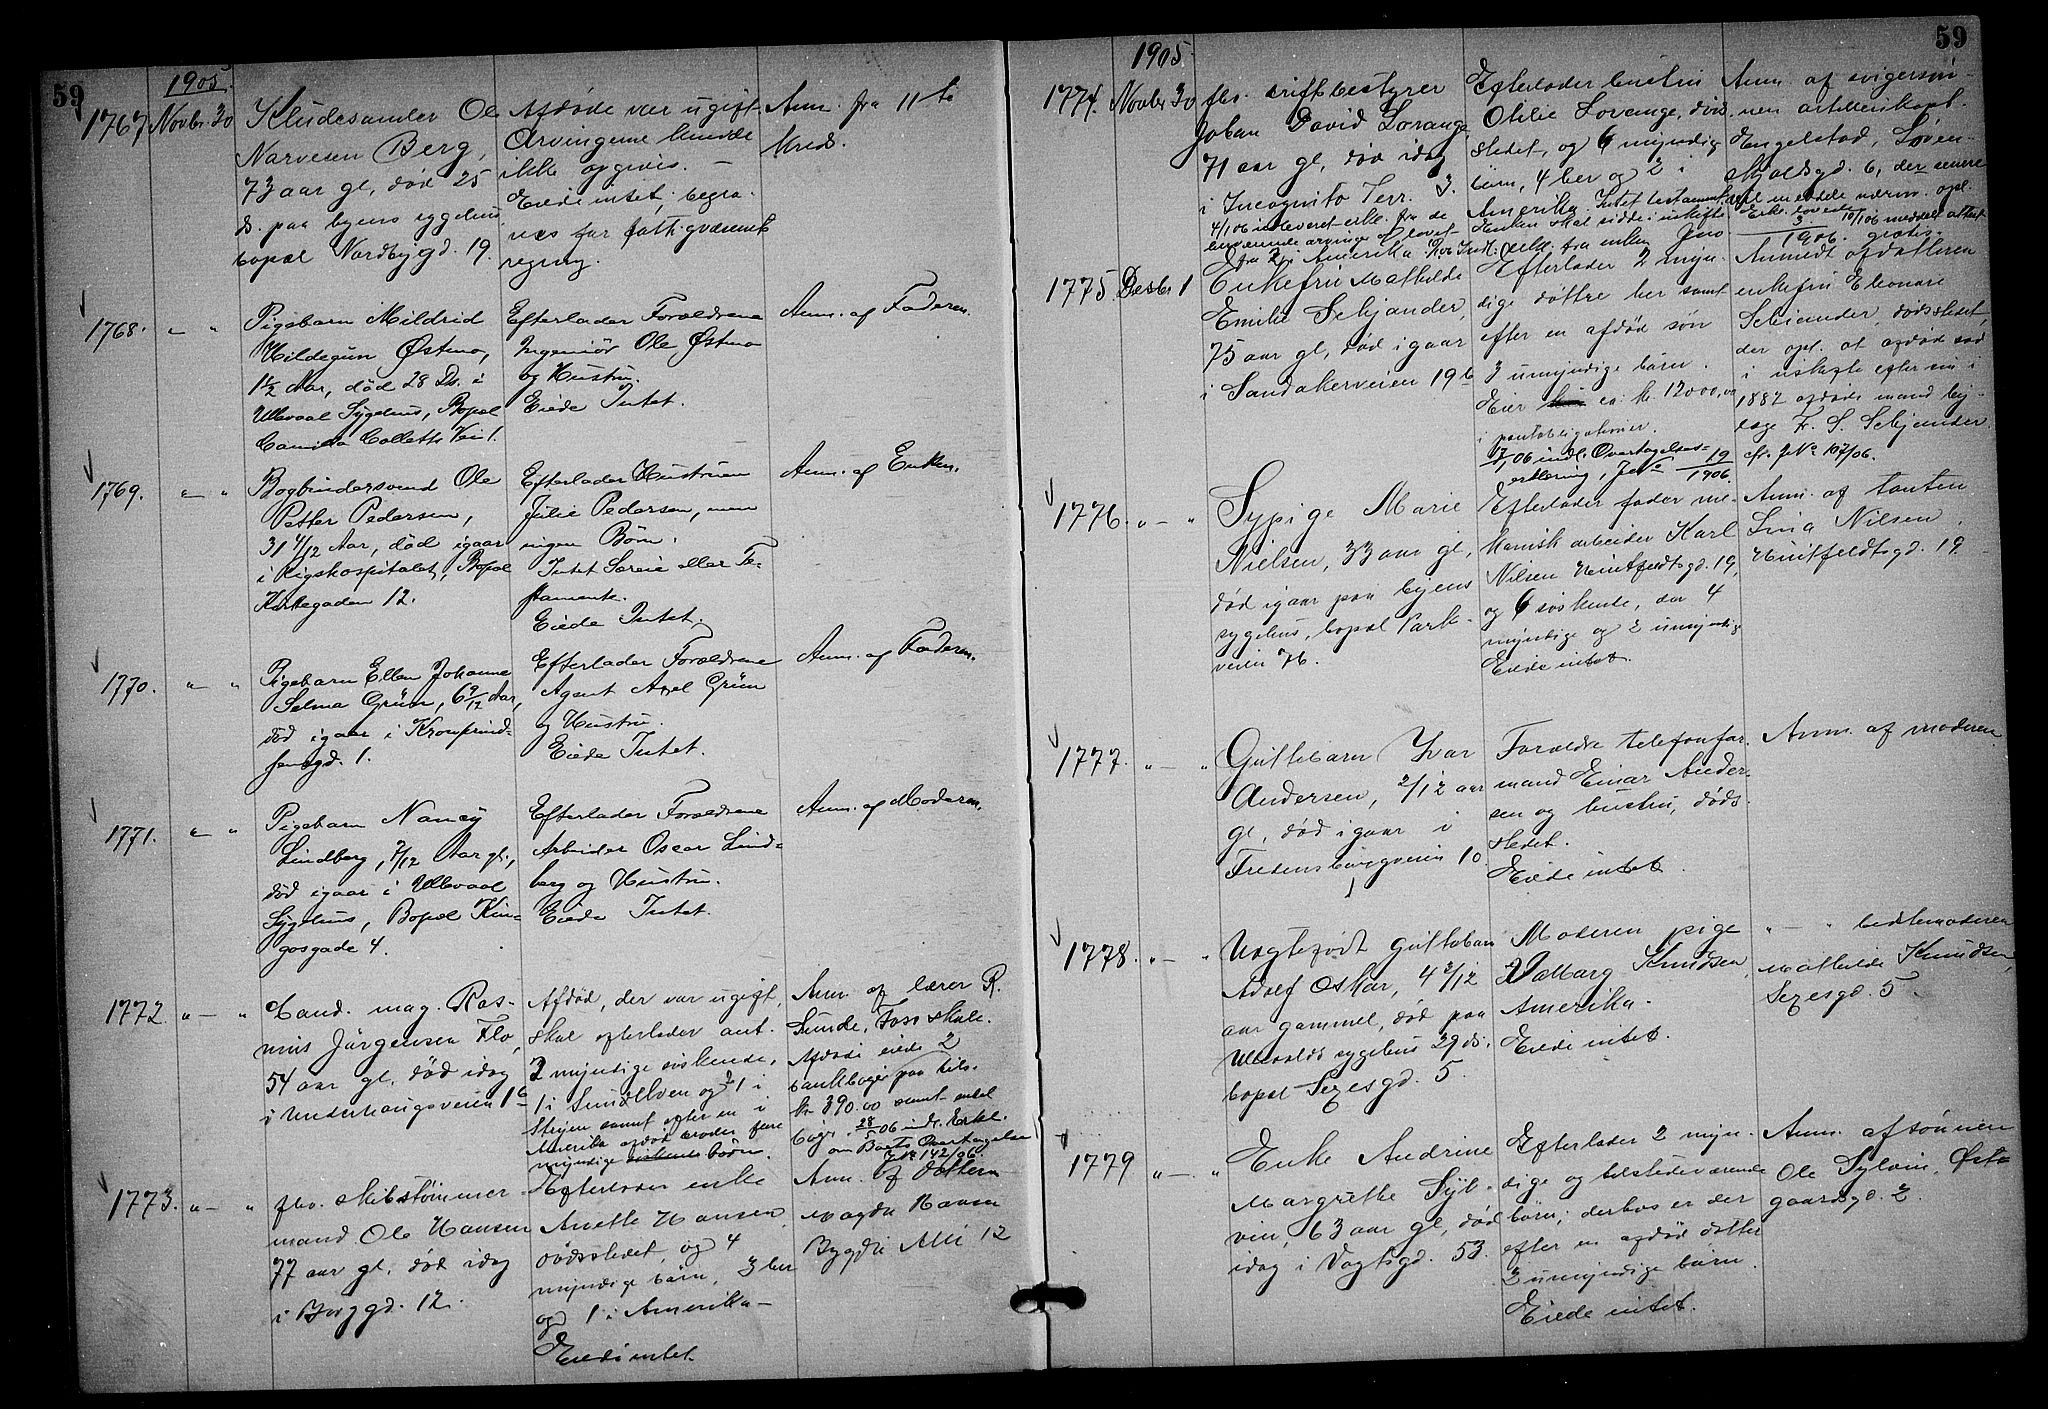 59
1905
1767 Novbr. 30
Kludesamler Ole
Narvesen Berg,
73 aar gl, død 25
ds. paa byens sygehus
bopæl Nordbygd. 19.
Afdøde var ugift.
Arvingerne kunde
ikke opgives. –
Eiede intet, begra-
ves for fatt.
regning.
Anm. fra 11te
kreds.
1768. " – "
Pigebarn Mildrid
Hildegun Østmo,
1½ Aar, død 28 Ds. i
Ullevaal Sygehus, Bopæl
Camilla Colletts Vei 1.
Efterlader Forældrene
Ingeniør Ole Østmo
og Hustru.
Eiede Intet.
Anm. af Faderen.
1769. " – "
Bogbindersvend Ole
Petter Pedersen,
31 4/12 Aar, død igaar
i Rigshospitalet, Bopæl
12.
Efterlader Hustruen
Julie Pedersen, men
ingen Børn.
Intet Særeie eller Te-
stamente.
Eiede Intet.
Anm. af Enken.
1770. " – "
Pigebarn Ellen Johanne
Selma Grün, 6 9/12 Aar,
død igaar i Kronprind-
sensgd. 1.
Efterlader Forældrene
Agent Axel Grün
og Hustru.
Eiede Intet.
Anm. af Faderen.
1771. " – "
Pigebarn Nancy
Lindberg, 7/12 Aar gl.,
død igaar i Ullevaal
Sygehus, Bopæl Kin-
gosgade 4.
Efterlader Forældrene
Arbeider Oscar Lind-
berg og Hustru.
Eiede Intet.
Anm. af Moderen.
1772 " – "
Cand. mag. Ras-
mus Jørgensen Flo,
54 aar gl, død idag
i Underhaugsveien 1
Afdød, der var ugift,
skal efterlader ant.
2 myndige søskende,
1 i og 1 i
Stryen samt efter en i
Amerika afdød broder flere
myndige søskende børn.
Anm. af lærer R.
Sunde, Foss skole.
Afdøde eiede 2
bankbøger paa tils.
kr 390.00 samt endel
bøger. 28/5 06 indl. Erkl.
om Boets Overtagelse
J.No 142/06.
1773. " – "
fhv. skibstømmer-
mand Ole Hansen
77 aar gl. død idag
i Borggd. 12.
Efterlader enke
Anette Hansen,
dødsstedet, og 4
myndige børn, 3 her
og 1 i Amerika –
Eiede intet.
Anm. af datteren
Magda Hansen
Bygdø Allé 12
59
1905.
1774. Novbr 30
fhv. driftbestyrer
Johan David Lorange,
71 aar gl, død idag
i Incognito Terr. 3.
4/1 06 indleveret erkl. fra de
arvinge
fra 2 i Amerika
Efterlader hustru
Othilie Lorange, døds-
stedet, og 6 myndige
børn, 4 her og 2 i
Amerika. Intet testamente
Enken skal sidde i uskiftet
erkl. fra enken Jno
Anm. af svigersøn-
nen artillerikapt.
Engelstad, Løven-
skjoldsgd. 6, der senere
vil meddele nærm. opl.
3/1906. 10/1 06 meddelt attest
gratis.
1775 Decbr 1
Enkefru Mathilde
Emilie Schjander,
75 aar gl, død igaar
i Sandakerveien 19b
Efterlader 2 myn-
dige døttre her samt
efter en afdød søn
3 umyndige børn.
Eier ca: kr. 12000,00
i pantobligationer.
06 indl. Overtagelses-
erklæring, J.No 19/1906.
Anmeldt af datteren
enkefru Eleonore
Schjander, dødsstedet,
der opl. at afdøde sad
i uskifte efter sin i
1887 afdøde mand
F. S. Schjander
cfr. J No 107/06.
1776. " – "
Sypige Marie
Nielsen, 33 aar gl,
død igaar paa byens
sygehus, bopæl Park-
veien
Efterlader fader me-
kanisk arbeider Karl
Nilsen Huitfeldtsgd. 19,
og 6 søskende, der 4
myndige og 2 umyndig
Eiede intet.
Anm. af tanten
Lina Nilsen,
Huitfeldtsgd. 19
1777. " – "
Guttebarn Ivar
Andersen, 2/12 aar
gl, død igaar i
Fredensborgveien 10.
Forældre telefonfor-
mand Einar Ander-
sen og hustru, døds-
stedet.
Eiede intet.
Anm. af moderen
1778. " – "
Uægtefødt Guttebarn
Adolf Oskar, 4 2/12
aar gammel, død paa
Ullevolds sygehus 29 ds.
bopæl Sexesgd. 5.
Moderen pige
Valborg Knudsen,
Amerika.
Eiede intet.
" – " bedstemoderen
Mathilde Knudsen,
Sexesgd. 5.
1779 " – "
Enke Andrine
Margrethe Syl-
vin, 63 aar gl, død
idag i Vogtsgd. 53.
Efterlader 2 myn-
dige og tilstedeværende
børn; derhos er der
efter en afdød datter
3 umyndige børn.
Eiede intet.
Anm. af sønnen
Ole Sylvin, Øst-
gaardsgd. 2.